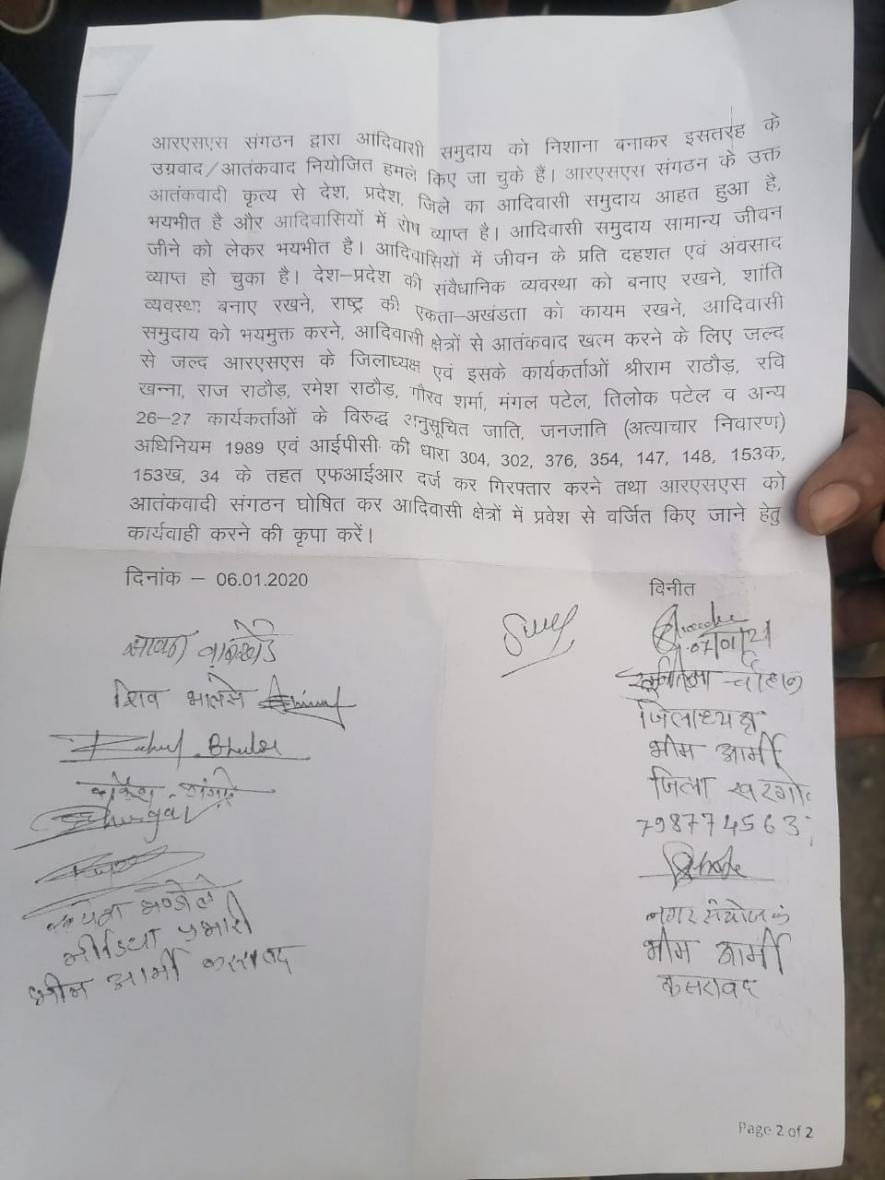 आरएसएस संगठन द्वारा आदिवासी समुदाय को निशाना बनाकर इसतरह के
उग्रवाद/आतंकवाद नियोजित हमले किए जा चुके हैं। आरएसएस संगठन के उक्त
आतंकवादी कृत्य से देश, प्रदेश, जिले का आदिवासी समुदाय आहत हुआ है,
भयभीत है और आदिवासियों में रोष व्याप्त है। आदिवासी समुदाय सामान्य जीवन
जीने को लेकर भयभीत है। आदिवासियों में जीवन के प्रति दहशत एवं अवसाद
व्याप्त हो चुका है। देश–प्रदेश की संवैधानिक व्यवस्था को बनाए रखने, शांति
व्यवस्था बनाए रखने, राष्ट्र की एकता–अखंडता को कायम रखने, आदिवासी
समुदाय को भयमुक्त करने, आदिवासी क्षेत्रों से आतंकवाद खत्म करने के लिए जल्द
से जल्द आरएसएस के जिलाध्यक्ष एवं इसके कार्यकर्ताओं श्रीराम राठौड़, रवि
खन्ना, राज राठौड़, रमेश राठौड़, गौरव शर्मा, मंगल पटेल, तिलोक पटेल व अन्य
26–27 कार्यकर्ताओं के विरुद्ध अनुसूचित जाति, जनजाति (अत्याचार निवारण)
अधिनियम 1989 एवं आईपीसी की धारा 304, 302, 376, 354, 147, 148, 153क,
153ख, 34 के तहत एफआईआर दर्ज कर गिरफ्तार करने तथा आरएसएस को
आतंकवादी संगठन घोषित कर आदिवासी क्षेत्रों में प्रवेश से वर्जित किए जाने हेतु
कार्यवाही करने की कृपा करें।
दिनांक – 06.01.2020
विनीत
07/01/21
चौहान
जिलाध्यक्ष
भीम आर्मी
जिला खरगो
798774563
नगर संयोजक
भीम आर्मी
कसरावद
सावन वानखेडे
शिव भालसे
Rahul Bhalse
मीडिया प्रभारी
भीम आर्मी कसरावद
Page 2 of 2